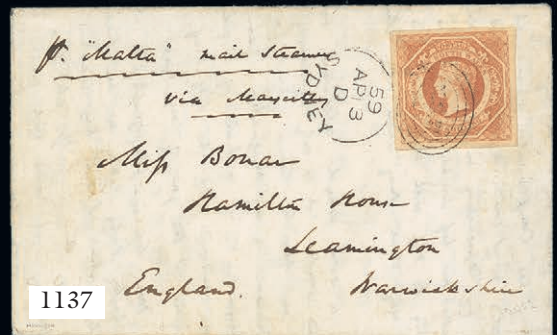 pr. "Malta" mail steamer
via Marseilles
SYDNEY
D
AP 3
59
Miss Bonar
Hamilton House
Leamington
England.
Warwickshire
1137